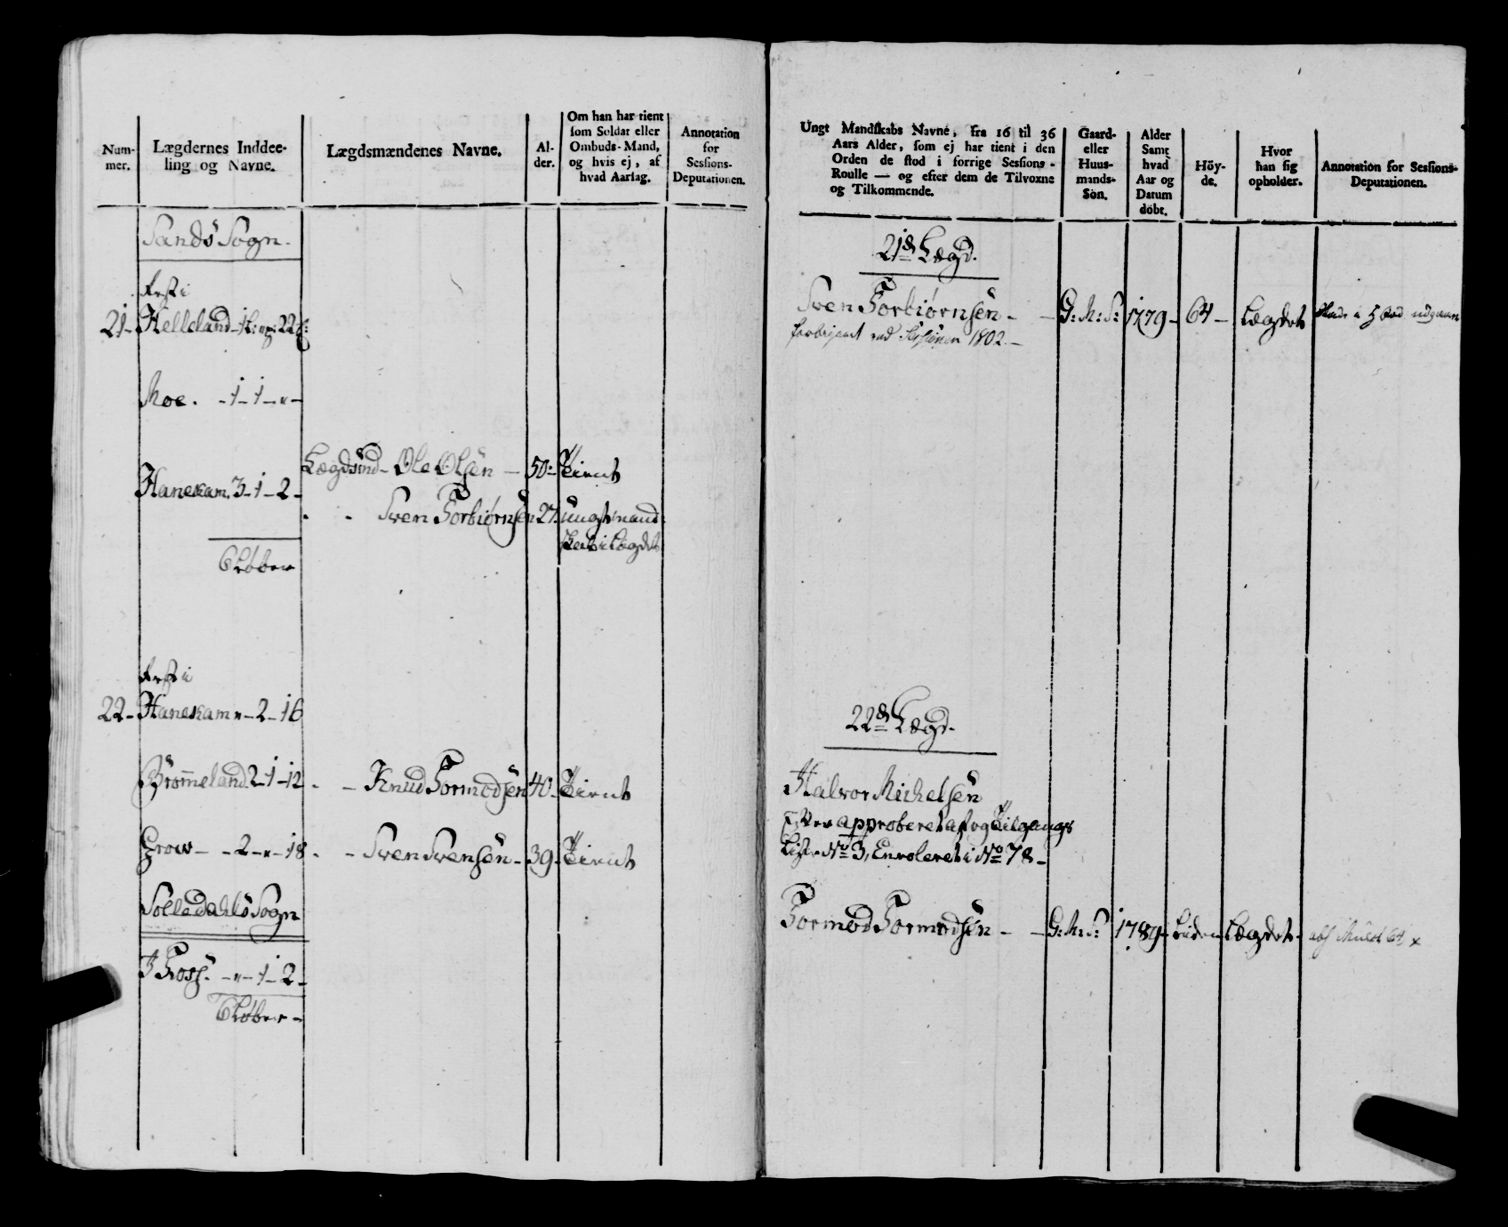 Num-
mer.
Lægdernes Inddee-
ling og Navne.
Lægdsmændenes Navne.
Al-
der.
Om han har tient
som Soldat eller
Ombuds-Mand,
og hvis ej, af
hvad Aarsag.
Annotation
for
Sessions-
Deputationen.
Sands Sogn.
Rest i
21- Helleland
Moe. - 1 - 1 -
Lægdsmd - Ole Olsen - 50 - Tient
Hanekam. 3 - 1 - 2 -
- - Sven Torbiørnsen 27.
6 Løber
Rest i
22- Hanekam - 2 - 16
Brømeland 2 - 1 - 12 - - Knud Tormodsen 40 - Tient
Grow - - 2 - - 18 - - Sven Svensen - 39 - Tient
Solledahls Sogn
- 1 - 2 -
6 Løber -
Ungt Mandskabs Navne, fra 16 til 36
Aars Alder, som ej har tient i den
Orden de stod i forrige Sessions-
Roulle — og efter dem de Tilvoxne
og Tilkommende.
Gaard-
eller
Huus-
mands-
Søn.
Alder
Samt
hvad
Aar og
Datum
døbt.
Höy-
de.
Hvor
han sig
opholder.
Annotation for Sessions-
Deputationen.
21de Lægd.
Sven Torbiørnsen - - G: M: S: 1779 - 64 - Lægdet
ved Sessionen 1802 -
22de Lægd.
Halvor Michelsen
approberet af og Tilgangs
Liste No 3, Enroleret i No 78 -
Tormod Tormodsen - - G: M: S: 1789 - Liden Lægdet -